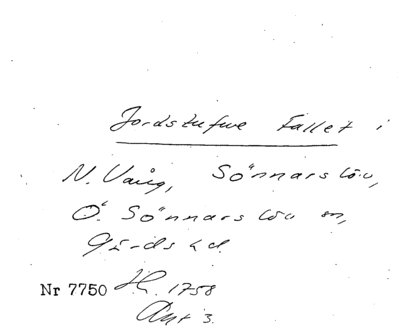 Jordstufve Fallet i
N. Vång, Sönnarslöv,
Ö. Sönnarslöv sn,
Gärds hd.
Nr 7750 H. 1758
Ant 3.